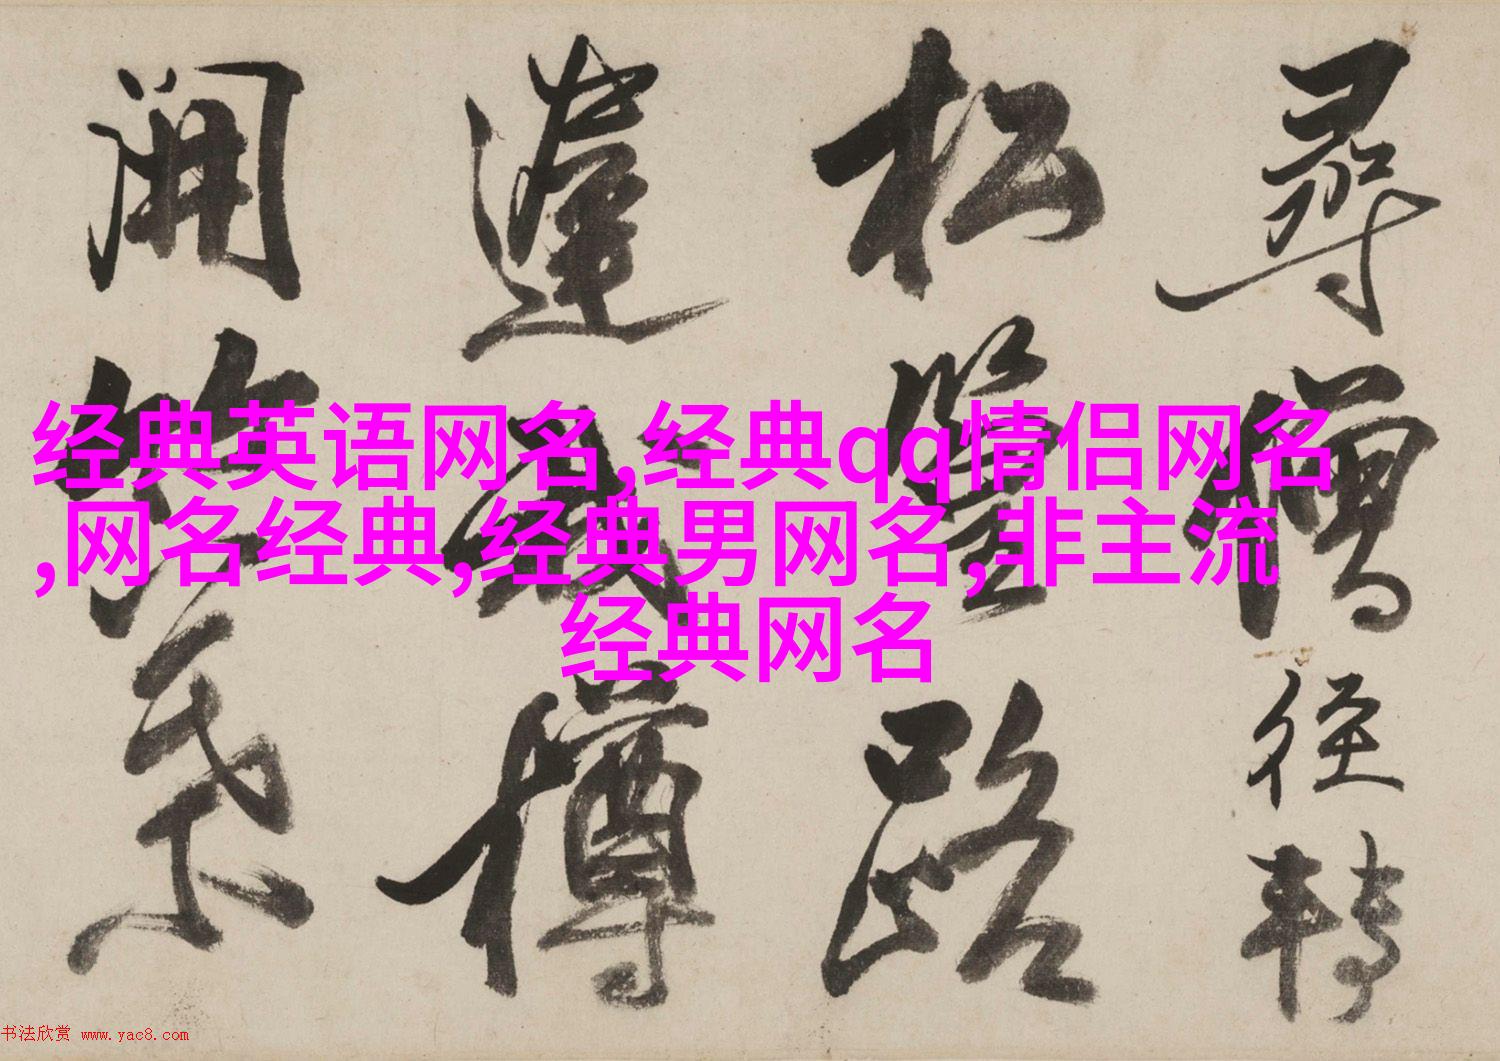 尋僧徑轉
松路
樽
開
经典英语网名,经典qq情侣网名
,网名经典,经典男网名,非主流
经典网名
书法欣赏 www.yac8.com